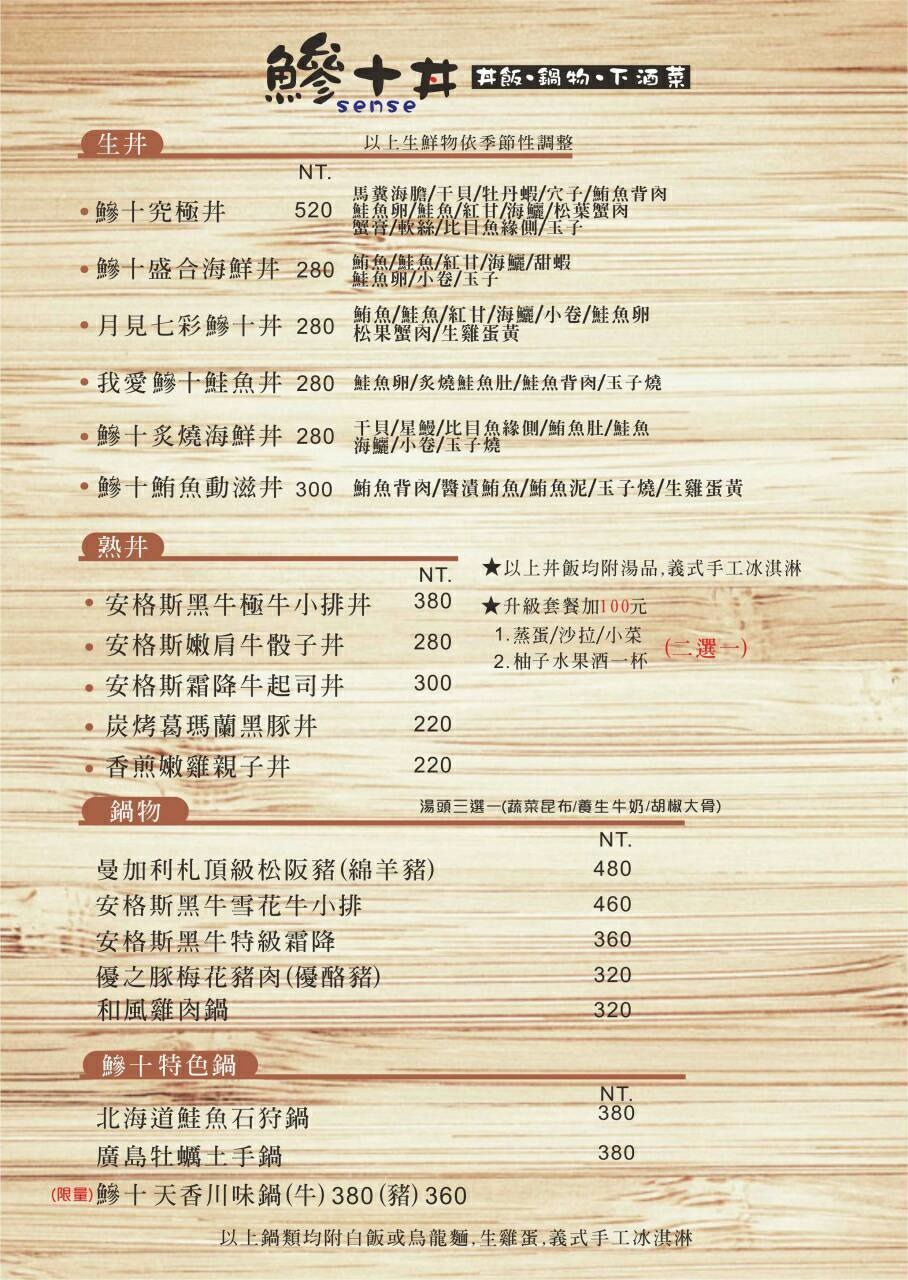 鰺十丼 丼飯·鍋物·下酒菜
sense
生丼 以上生鮮物依季節性調整
NT.
•鰺十究極丼 520 馬糞海膽/干貝/牡丹蝦/穴子/鮪魚背肉
鮭魚卵/鮭魚/紅甘/海鱺/松葉蟹肉
蟹膏/軟絲/比目魚緣側/玉子
•鰺十盛合海鮮丼 280 鮪魚/鮭魚/紅甘/海鱺/甜蝦
鮭魚卵/小卷/玉子
•月見七彩鰺十丼 280 鮪魚/鮭魚/紅甘/海鱺/小卷/鮭魚卵
松果蟹肉/生雞蛋黃
•我愛鰺十鮭魚丼 280 鮭魚卵/炙燒鮭魚肚/鮭魚背肉/玉子燒
•鰺十炙燒海鮮丼 280 干貝/星鰻/比目魚緣側/鮪魚肚/鮭魚
海鱺/小卷/玉子燒
•鰺十鮪魚動滋丼 300 鮪魚背肉/醬漬鮪魚/鮪魚泥/玉子燒/生雞蛋黃
熟丼
NT.
•安格斯黑牛極牛小排丼 380
•安格斯嫩肩牛骰子丼 280
•安格斯霜降牛起司丼 300
•炭烤葛瑪蘭黑豚丼 220
•香煎嫩雞親子丼 220
★以上丼飯均附湯品,義式手工冰淇淋
★升級套餐加100元
1.蒸蛋/沙拉/小菜
2.柚子水果酒一杯 (二選一)
鍋物 湯頭三選一(蔬菜昆布/養生牛奶/胡椒大骨)
NT.
曼加利札頂級松阪豬(綿羊豬) 480
安格斯黑牛雪花牛小排 460
安格斯黑牛特級霜降 360
優之豚梅花豬肉(優酪豬) 320
和風雞肉鍋 320
鰺十特色鍋
NT.
北海道鮭魚石狩鍋 380
廣島牡蠣土手鍋 380
(限量)鰺十天香川味鍋(牛) 380 (豬) 360
以上鍋類均附白飯或烏龍麵,生雞蛋,義式手工冰淇淋